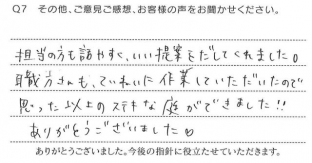 Q7 その他、ご意見ご感想、お客様の声をお聞かせください。
担当の方も話やすく、いい提案をだしてくれました。
職方さんも、ていねいに作業していただいたので
思った以上のステキな庭ができました!!
ありがとうございました。
ありがとうございました。今後の指針に役立たせていただきます。